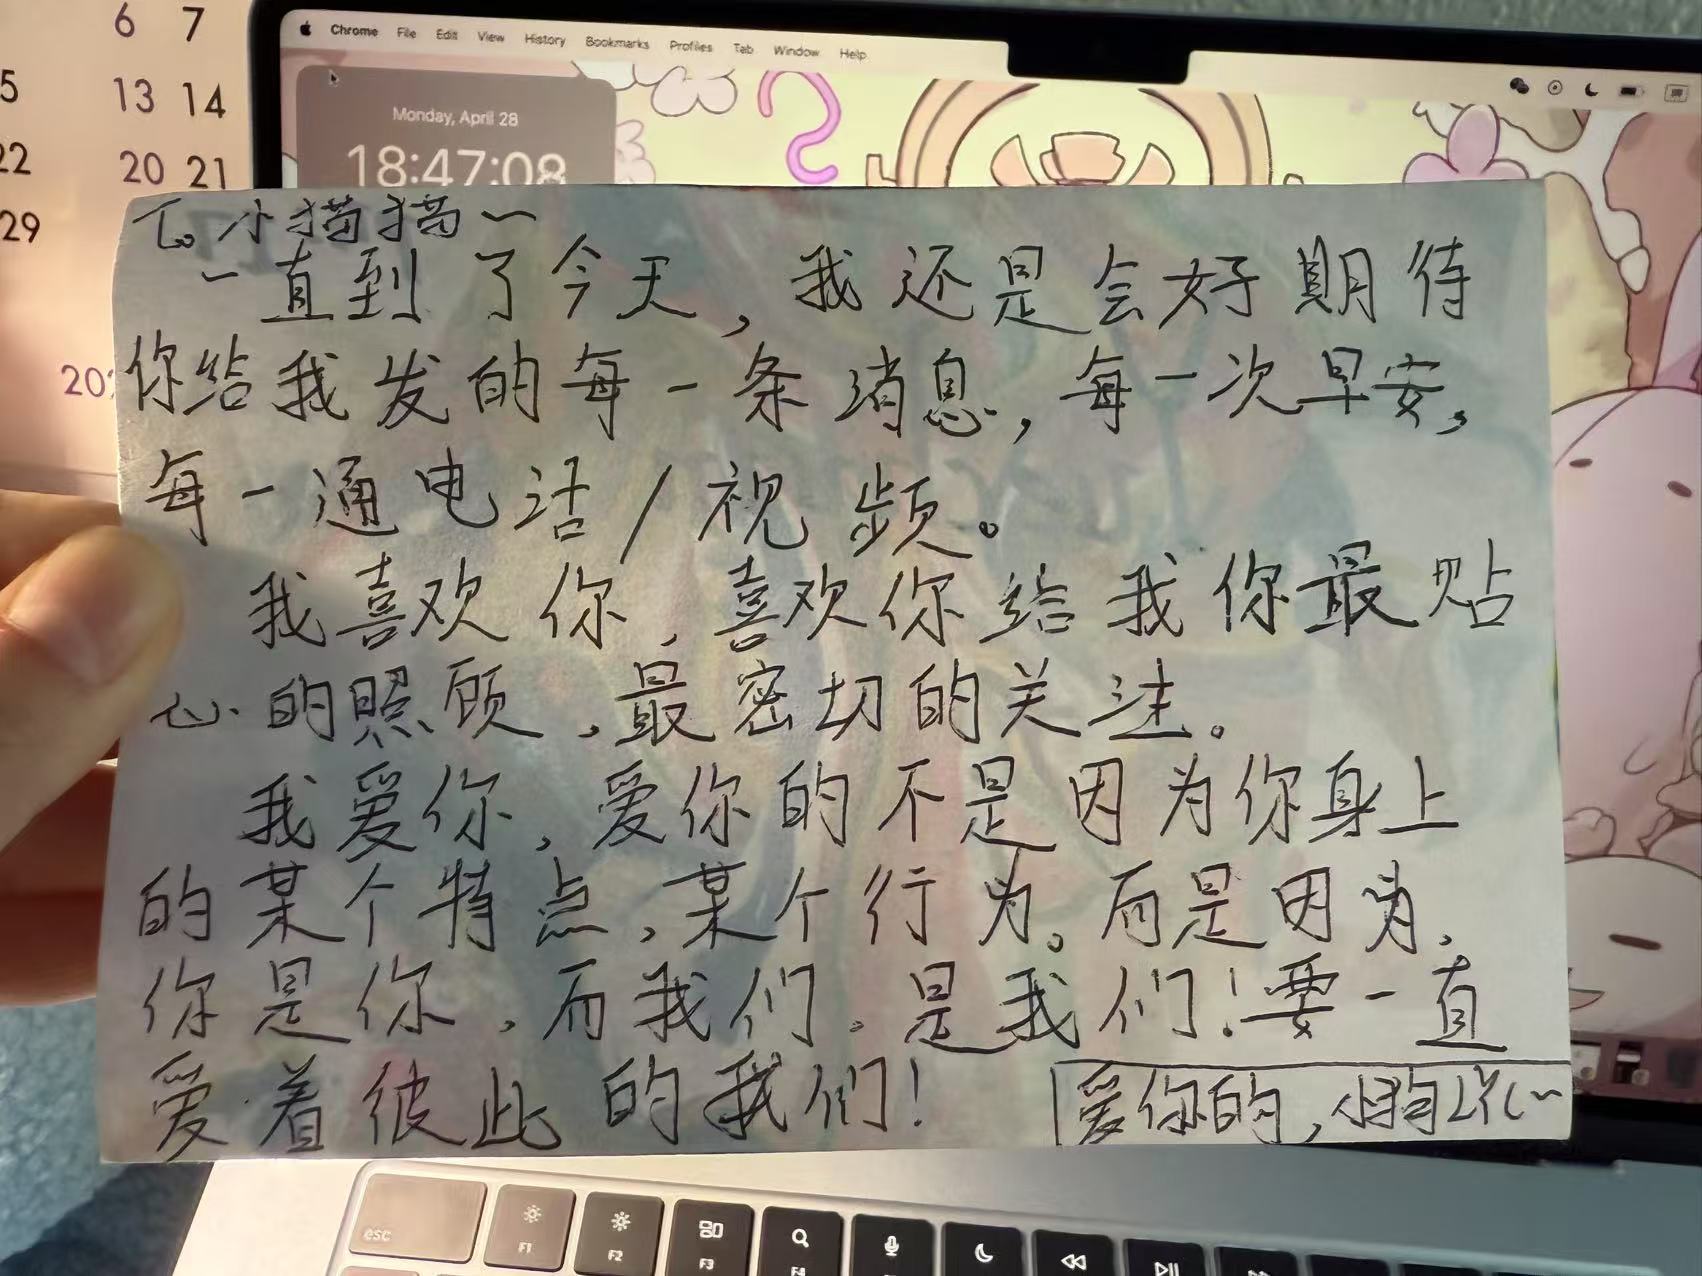 6 7
5 13 14
22 20 21
29
20
Chrome File Edit View History Bookmarks Profiles Tab Window Help
Monday, April 28
18:47:08
To 小猫猫～
一直到了今天，我还是会好期待
你给我发的每一条消息，每一次早安，
每一通电话/视频。
我喜欢你，喜欢你给我你最贴
心的照顾，最密切的关注。
我爱你，爱你的不是因为你身上
的某个特点，某个行为。而是因为，
你是你，而我们，是我们！要一直
爱着彼此的我们！
爱你的，小狗
esc F1 F2 F3 F4